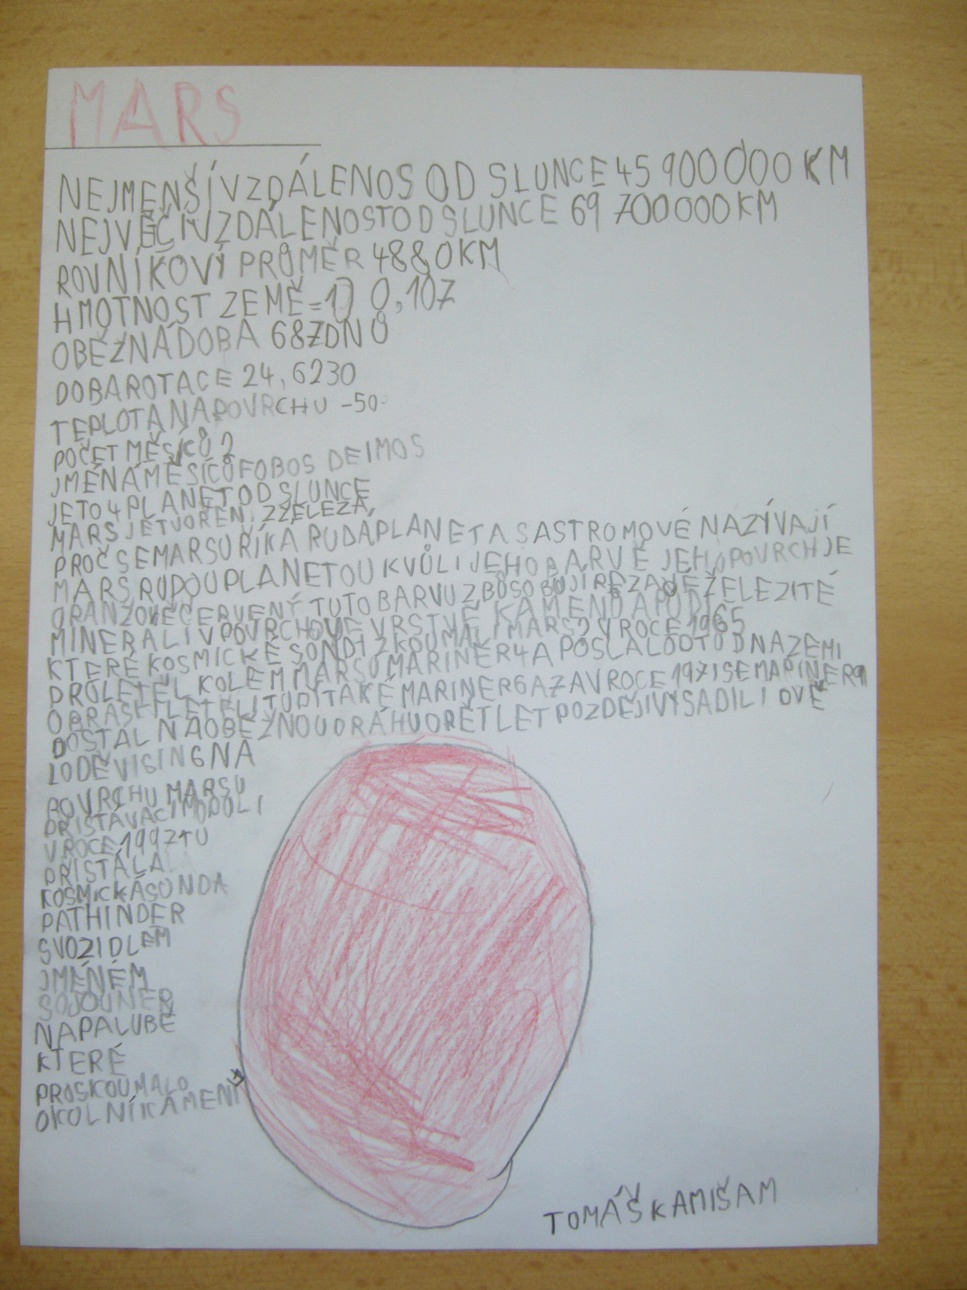 MARS
NEJMENŠÍ VZDÁLENOS OD SLUNCE 45 900 000 KM
NEJVĚČÍ VZDÁLENOST OD SLUNCE 69 700 000 KM
ROVNÍKOVÝ PRŮMĚR 4880 KM
HMOTNOST ZEMĚ=1) 0,107
OBĚŽNÁ DOBA 687 DNŮ
DOBA ROTACE 24,6230
TEPLOTA NA POVRCHU -50
POČET MĚSÍCŮ 2
JMÉNA MĚSÍCŮ FOBOS DEIMOS
JE TO 4 PLANET OD SLUNCE
MARS JE TVOŘEN, Z ŽELEZA,
PROČ SE MARSU ŘÍKÁ RUDA PLANETA SASTROMOVÉ NAZÍVAJÍ
MARS RUDOU PLANETOU KVŮLI JEHO BARVĚ JEHO POVRCH JE
ORANŽOVĚ ČERVENÝ TUTO BARVU ZBŮSOBUJÍ REZAVĚ ŽELEZITÉ
MINERALI V POVRCHOVÉ VRSTVĚ KAMENŮ A PŮDI
KTERÉ KOSMICKÉ SONDI ZKOUMALI MARS? V ROCE 1965
PROLETĚL KOLEM MARSU MARINER 4 A POSLAL ODTUD NA ZEMI
OBRAS LETĚLI TUDI TAKÉ MARINER 6 A 7 A V ROCE 1971 SE MARINER 9
DOSTAL NA OBĚŽNOU DRÁHU O PĚT LET POZDĚJI VYSADILI DVĚ
LODĚ VISING NA
POVRCHU MARSU
PŘISTÁVACÍ MODULI
V ROCE 1997 TU
PŘISTÁLA
KOSMICKÁ SONDA
PATHINDER
S VOZIDLEM
JMÉNEM
SOJOUNER
NA PALUBĚ
KTERÉ
PROSKOUMALO
OKOLNÍ KAMENÍ
TOMÁŠ KAMIŠAM